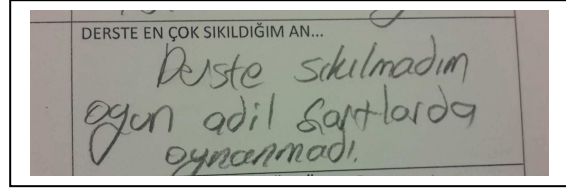 DERSTE EN ÇOK SIKILDIĞIM AN...
Derste sıkılmadım
oyun adil şartlarda
oynanmadı.